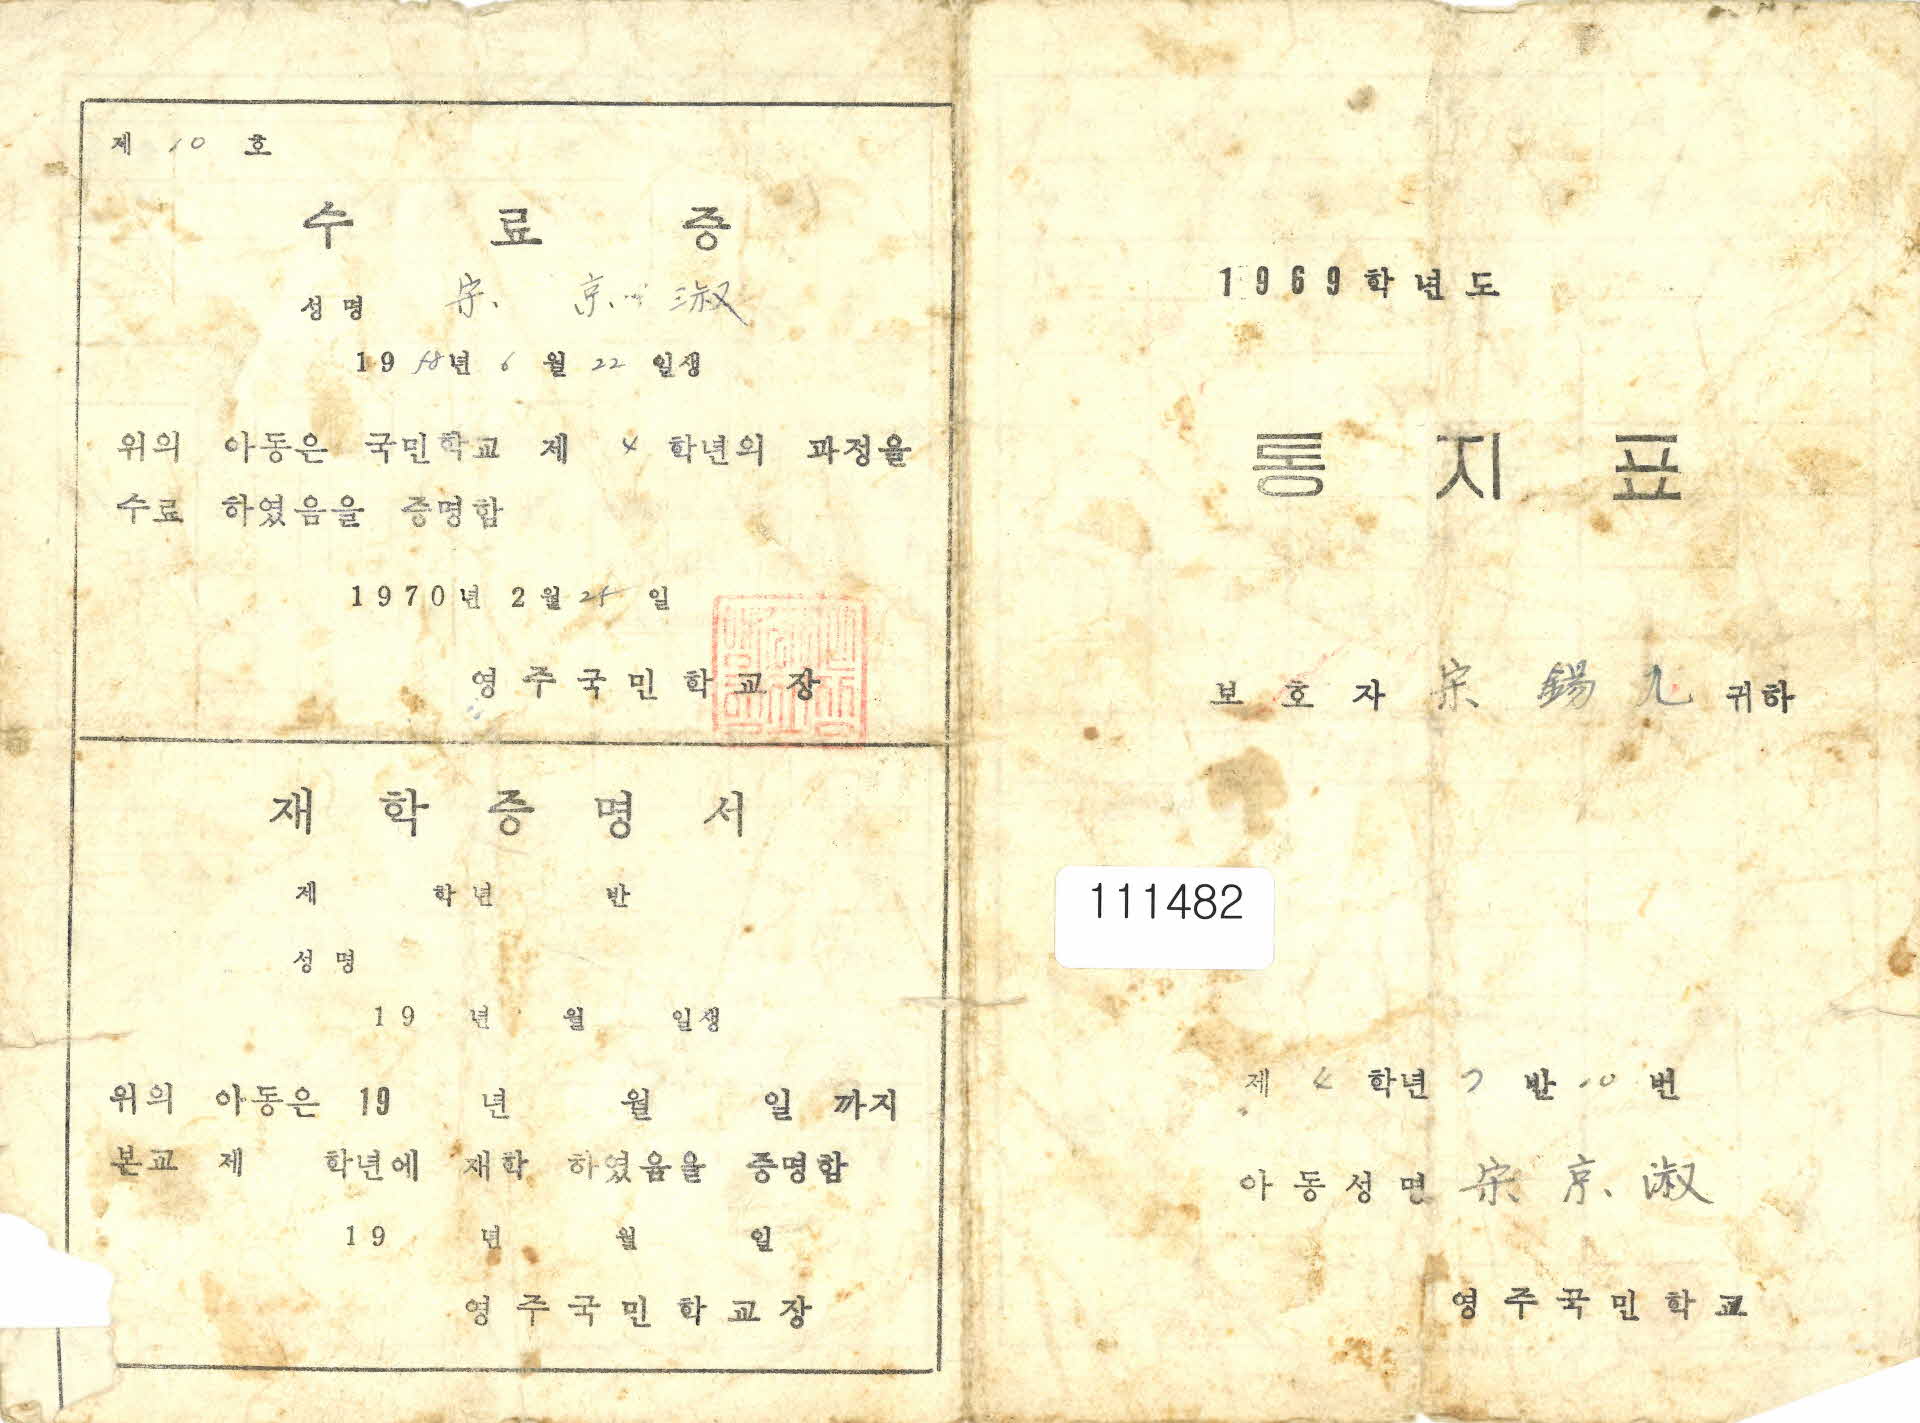 제 10 호
수료증
성명 宋 京淑
1958년 6월 22일생
위의 아동은 국민학교 제 4 학년의 과정을
수료 하였음을 증명함
1970년 2월 25일
영주국민학교장
재학증명서
제 학년 반
성명
19 년 월 일생
위의 아동은 19 년 월 일 까지
본교 제 학년에 재학 하였음을 증명함
19 년 월 일
영주국민학교장
1969학년도
통지표
보호자 宋 錫 九 귀하
111482
제 4 학년 7 반 10 번
아동성명 宋 京 淑
영주국민학교